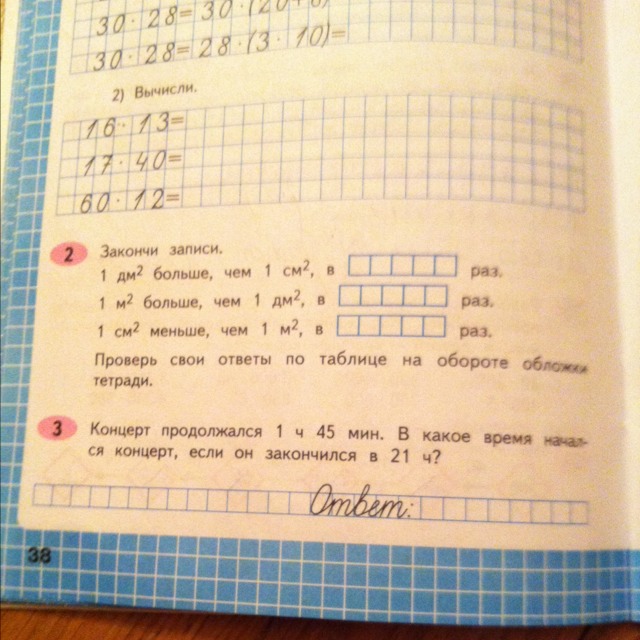 30 · 28 = 30 · (20+8)
30 · 28 = 28 · (3 · 10)=
2) Вычисли.
16 · 13=
17 · 40=
60 · 12=
2 Закончи записи.
1 дм² больше, чем 1 см², в раз.
1 м² больше, чем 1 дм², в раз.
1 см² меньше, чем 1 м², в раз.
Проверь свои ответы по таблице на обороте обложки
тетради.
3 Концерт продолжался 1 ч 45 мин. В какое время начал-
ся концерт, если он закончился в 21 ч?
Ответ:
38